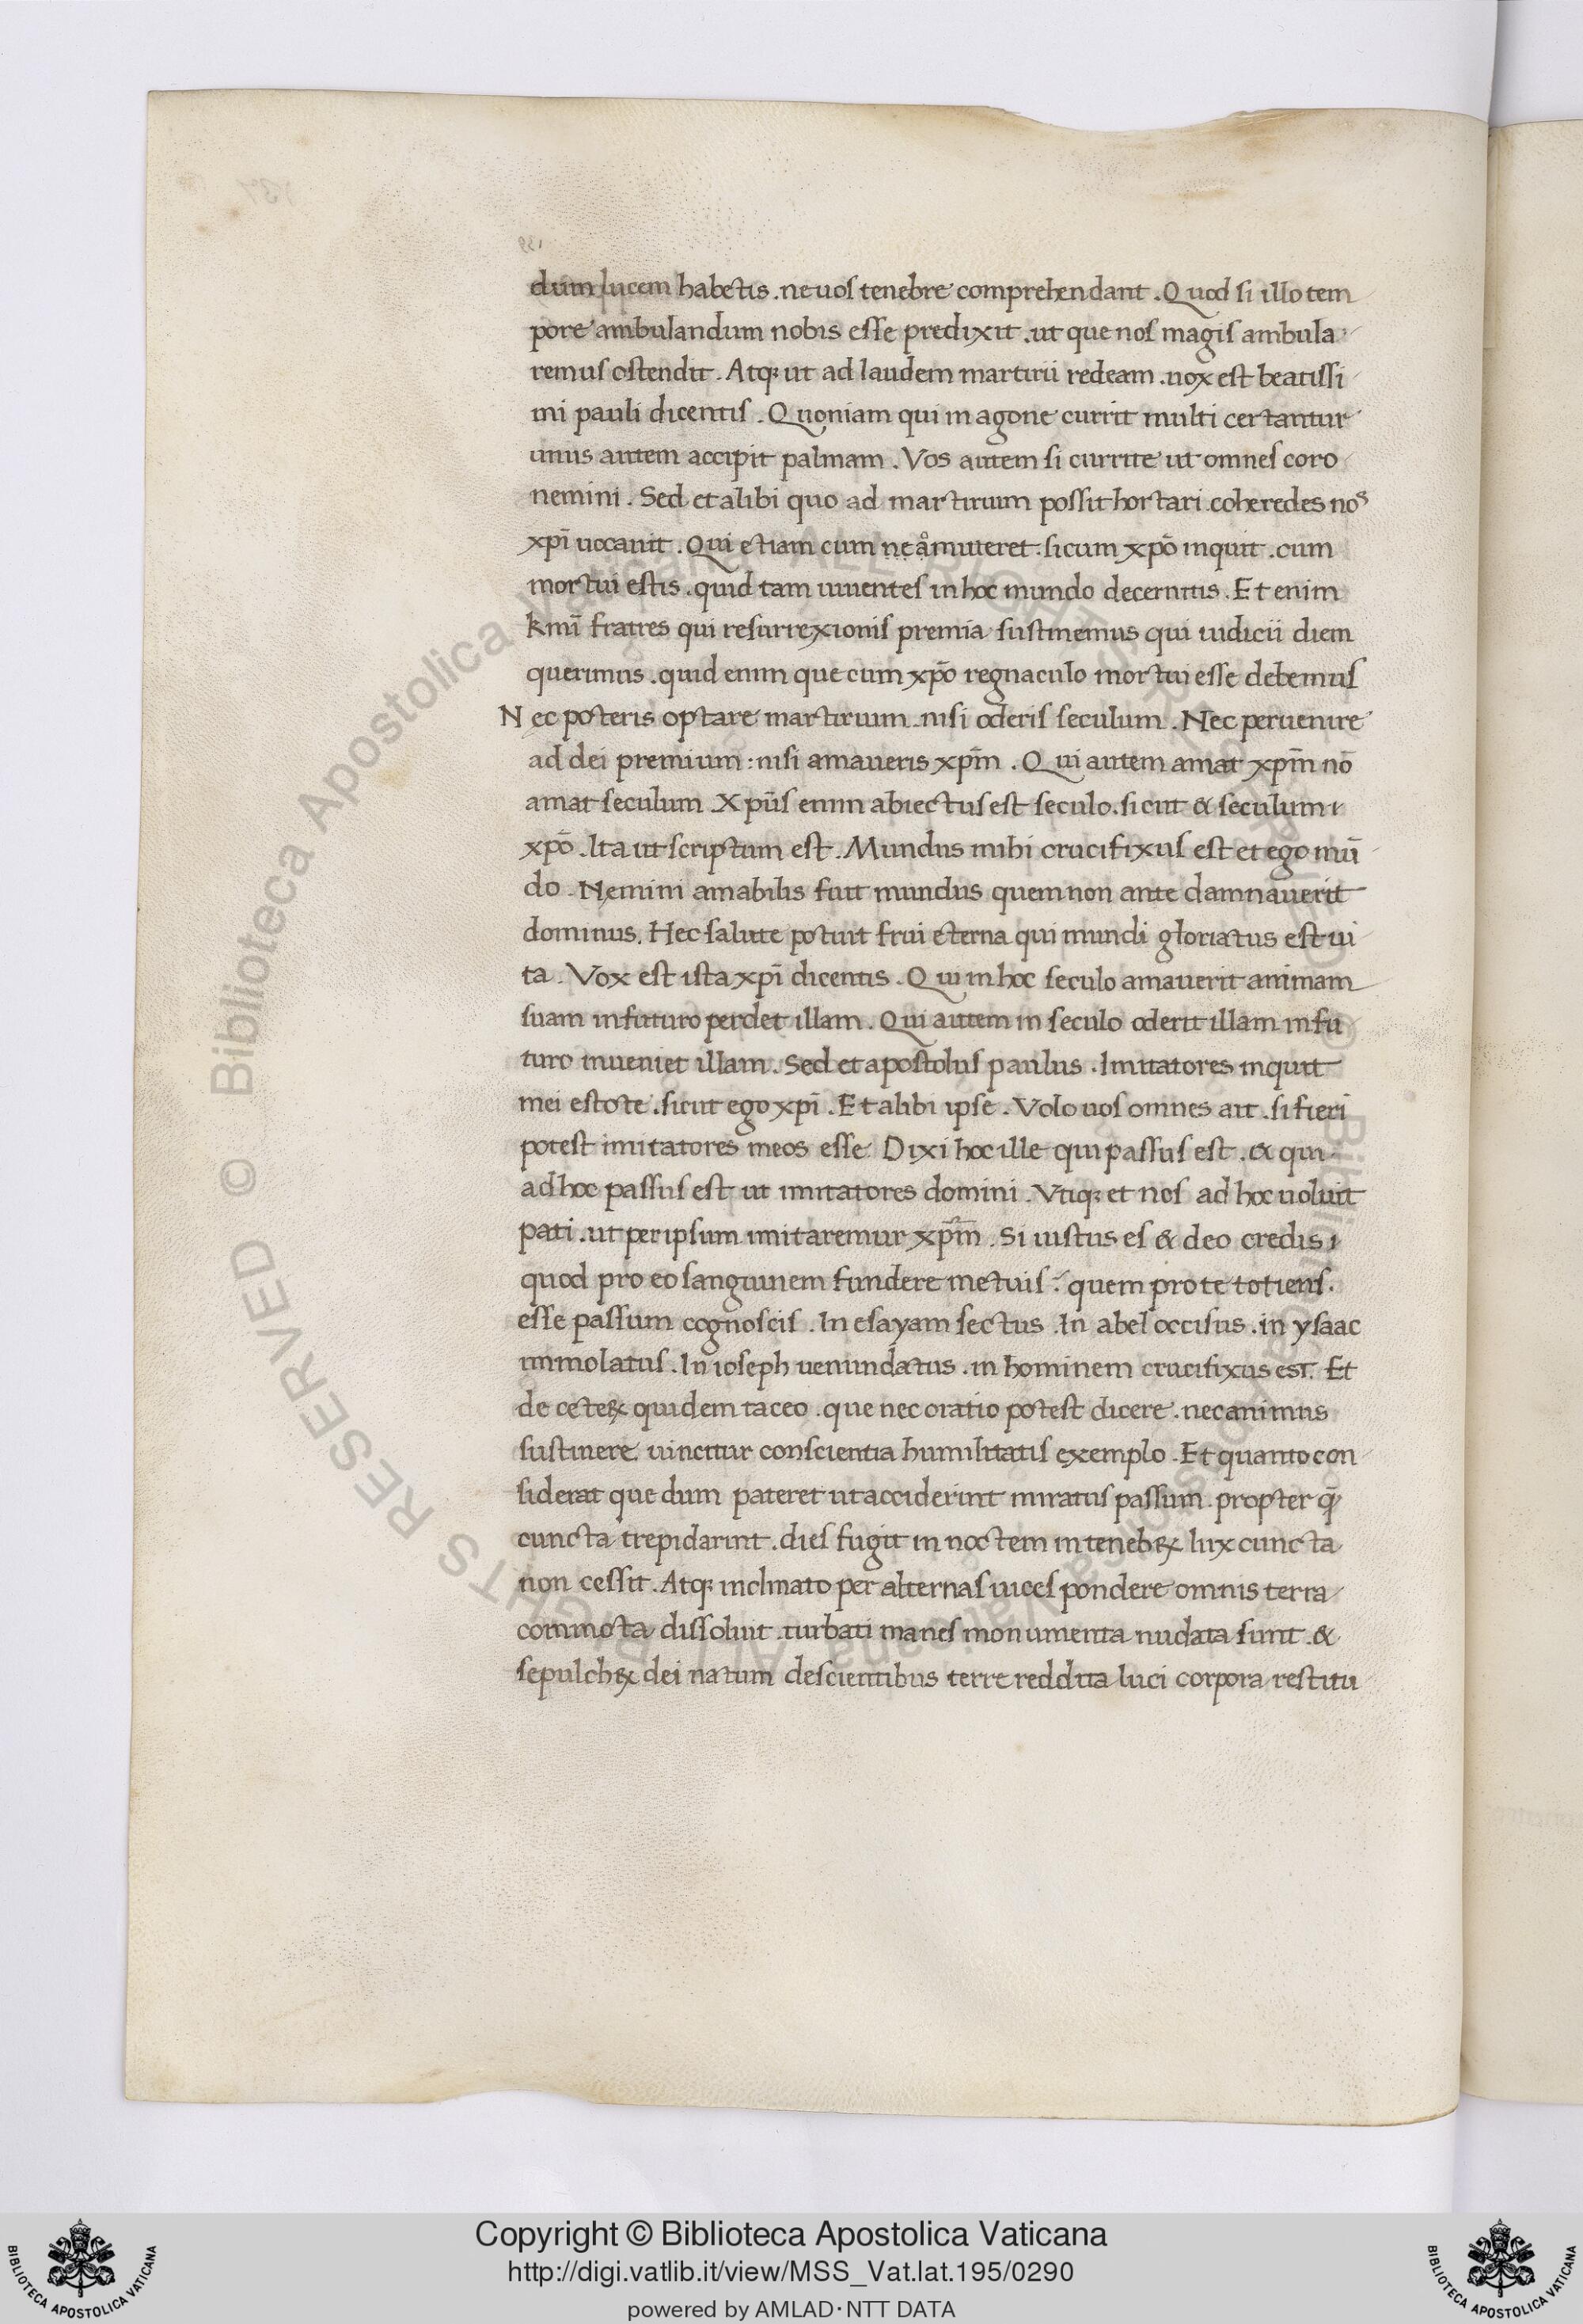 dum lucem habetis . ne uos tenebre comprehendant . Quod si illo tem
pore ambulandum nobis esse predixit . ut que nos magis ambula
remus ostendit . Atq; ut ad laudem martirii redeam . uox est beatissi
mi pauli dicentis . Quoniam qui in agone currit multi certantur
unus autem accipit palmam . Vos autem si currite ut omnes coro
nemini . Sed et alibi quo ad martirium possit hortari coheredes nos
xpī uocauit . Qui etiam cum ne amitteret : si cum xpō inquit . cum
mortui estis . quid tam uiuentes in hoc mundo decernitis . Et enim
kmī fratres qui resurrexionis premia sustinemus qui iudicii diem
querimus . quid enim que cum xpō regnaculo mortui esse debemus
Nec poteris optare martirium . nisi oderis seculum . Nec peruenire
ad dei premium : nisi amaueris xpm̄ . Qui autem amat xpm̄ nō
amat seculum . Xpūs enim abiectus est seculo . sicut & seculum i
xpō . Ita ut scriptum est . Mundus mihi crucifixus est et ego mū
do . Nemini amabilis fuit mundus quem non ante damnauerit
dominus . Nec salute potuit frui eterna qui mundi gloriatus est ui
ta . Vox est ista xpī dicentis . Qui in hoc seculo amauerit animam
suam in futuro perdet illam . Qui autem in seculo oderit illam in fu
turo inueniet illam . Sed et apostolus paulus . Imitatores inquit
mei estote . sicut ego xpī . Et alibi ipse . Volo uos omnes ait . si fieri
potest imitatores meos esse . Dixi hoc ille qui passus est . & qui
ad hoc passus est ut imitatores domini . Vtiq; et nos ad hoc uoluit
pati . ut per ipsum imitaremur xpm̄ . Si iustus es & deo credis i
quod pro eo sanguinem fundere metuis : quem pro te totiens .
esse passum cognoscis . In esayam sectus . In abel occisus . in ysaac
immolatus . In ioseph uenundatus . in hominem crucifixus est . Et
de ceteꝝ quidem taceo . que nec oratio potest dicere . nec animus
sustinere . uincitur conscientia humilitatis exemplo . Et quanto con
siderat que dum pateret ut acciderint miratus passum . propter q̄
cuncta trepidarint . dies fugit in noctem in tenebꝝ lux cuncta
non cessit . Atq; inclinato per alternas uices pondere omnis terra
commota dissoluit . turbati manes monumenta nudata sunt . &
sepulchꝝ dei natum descientibus terre reddita luci corpora restitu
Copyright © Biblioteca Apostolica Vaticana
http://digi.vatlib.it/view/MSS_Vat.lat.195/0290
powered by AMLAD·NTT DATA